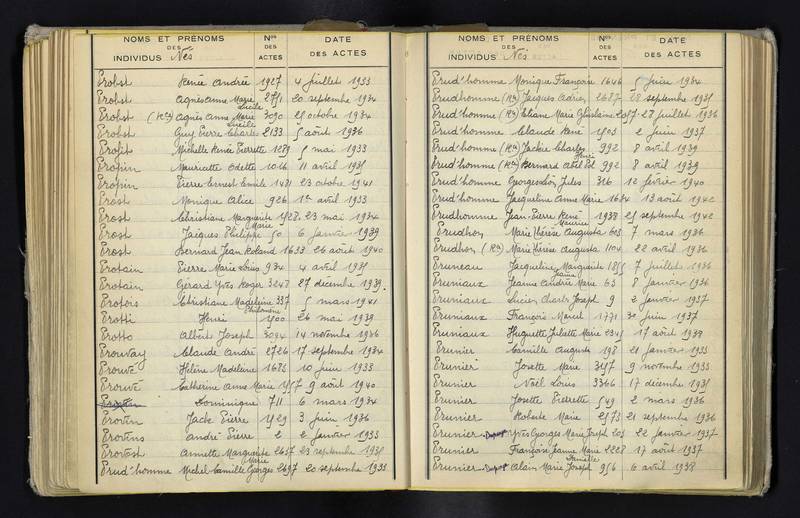 NOMS ET PRÉNOMS
DES
INDIVIDUS Nés
Nos
DES
ACTES
DATE
DES ACTES
Probst Renée Andrée 1927 4 juillet 1933
Probst Agnès Anne Marie Lucile 2751 20 septembre 1934
Probst (Rct) Agnès Anne Marie Lucile 3090 25 octobre 1934
Probst Guy Pierre Charles 2133 5 août 1936
Profit Michelle Renée Pierrette 1289 5 mai 1933
Propin Mauricette Odette 1046 11 avril 1935
Propin Pierre Ernest Emile 1481 23 octobre 1941
Prost Monique Alice 926 15 avril 1933
Prost Christiane Marguerite 1428 23 mai 1934
Prost Jacques Philippe Marie 50 6 janvier 1939
Prost Bernard Jean Roland 1633 26 août 1940
Protain Pierre Marie Louis 934 4 avril 1935
Protain Gérard Yves Roger 3248 27 décembre 1939
Protois Christiane Madeleine 337 5 mars 1941
Protti Henri 1400 26 mai 1939
Protto Albert Joseph 3094 14 novembre 1936
Prouvay Claude André 2726 17 septembre 1934
Prouvé Hélène Madeleine 1685 10 juin 1933
Prouvé Catherine Anne Marie 1557 9 août 1940
Dominique 711 6 mars 1934
Provin Jack Pierre 1429 3 juin 1936
Provins André Pierre 2 2 janvier 1933
Provost Annette Marguerite Marie 2657 23 septembre 1935
Prud'homme Michel Camille Georges 2697 20 septembre 1933
NOMS ET PRÉNOMS
DES
INDIVIDUS Nés
Nos
DES
ACTES
DATE
DES ACTES
Prud'homme Monique Françoise 1646 juin 1934
Prudhomme (Rct) Jacques Adrien 2687 28 septembre 1935
Prud'homme (Rct) Eliane Marie Ghislaine 2057 28 juillet 1936
Prud'homme Claude René 1403 2 juin 1937
Prud'homme (Rct) Jackie Charles 992 8 avril 1939
Prud'homme (Rct) Bernard Abel Henri 992 8 avril 1939
Prud'homme Georges Léon Jules 326 12 février 1940
Prud'homme Jacqueline Anne Marie 1634 13 août 1942
Prudhomme Jean-Pierre René Maurice 1938 25 septembre 1942
Prudhon Marie Thérèse Augusta 603 7 mars 1936
Prudhon (Rct) Marie Thérèse Augusta 1104 22 avril 1936
Pruneau Jacqueline Marguerite Jeanne 1855 7 juillet 1936
Pruniaux Jeanne Andrée Marie 63 8 janvier 1936
Pruniaux Lucien Charles Joseph 9 2 janvier 1937
Pruniaux François Marcel 1771 30 juin 1937
Pruniaux Huguette Juliette Marie 2345 17 août 1939
Prunier Camille Auguste 198 21 janvier 1933
Prunier Josette Marie 3157 9 novembre 1933
Prunier Noël Louis 3346 17 décembre 1935
Prunier Josette Pierrette 549 2 mars 1936
Prunier Roberte Marie 2573 21 septembre 1936
Prunier-Dupas Yves Georges Marie Joseph 203 22 janvier 1937
Prunier Françoise Jeanne Marie Danielle 2228 17 août 1937
Prunier-Dupas Alain Marie Joseph 956 6 avril 1938